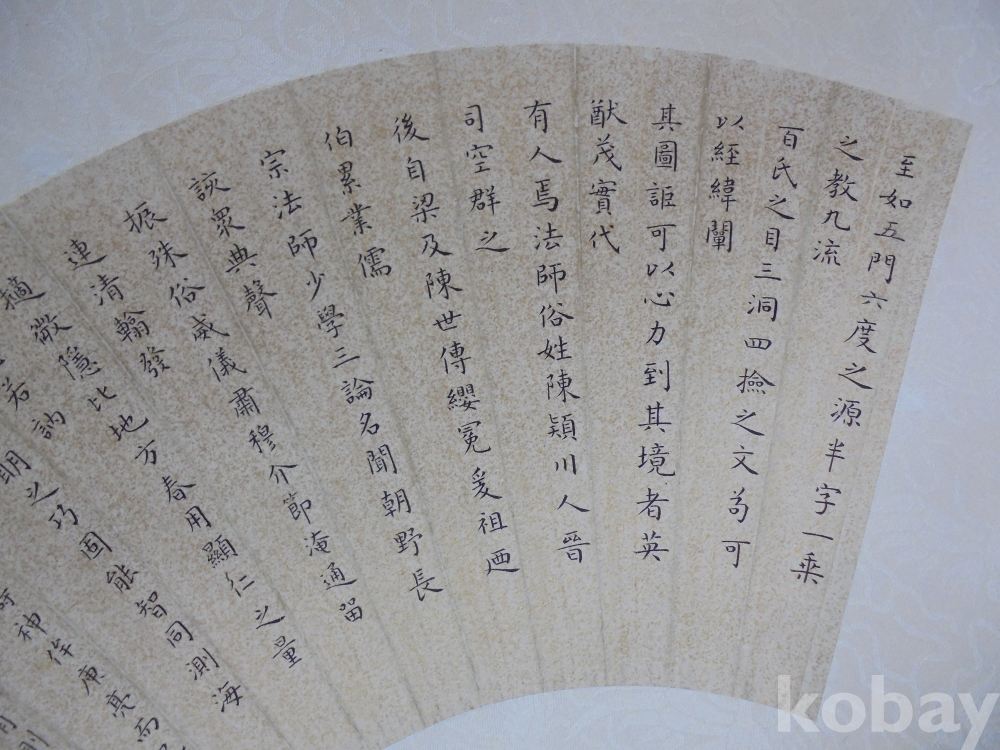 至如五門六度之源半字一乘
之教九流
百氏之目三洞四撿之文苟可
以經緯闡
其圖詎可以心力到其境者英
猷茂實代
有人焉法師俗姓陳潁川人晉
司空群之
後自梁及陳世傳纓冕爰祖迺
伯累業儒
宗法師少學三論名聞朝野長
該眾典聲
振殊俗威儀肅穆介節淹通留
連清翰發
擿微隱比地方春用顯仁之量
若訥
明之巧固能智同測海
神侔庾亮而
則
kobay